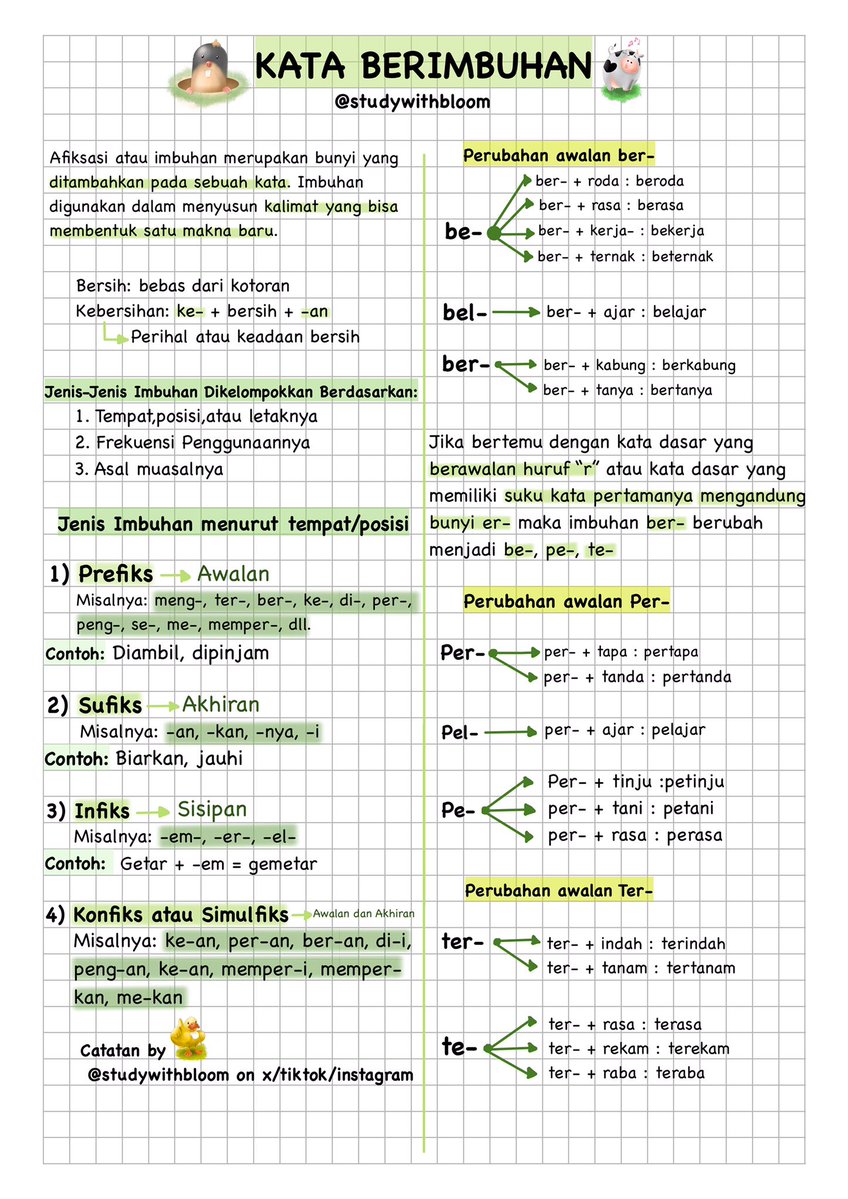 KATA BERIMBUHAN
@studywithbloom
Afiksasi atau imbuhan merupakan bunyi yang
ditambahkan pada sebuah kata. Imbuhan
digunakan dalam menyusun kalimat yang bisa
membentuk satu makna baru.
Bersih: bebas dari kotoran
Kebersihan: ke- + bersih + -an
Perihal atau keadaan bersih
Jenis-Jenis Imbuhan Dikelompokkan Berdasarkan:
1. Tempat,posisi,atau letaknya
2. Frekuensi Penggunaannya
3. Asal muasalnya
Jenis Imbuhan menurut tempat/posisi
1) Prefiks Awalan
Misalnya: meng-, ter-, ber-, ke-, di-, per-,
peng-, se-, me-, memper-, dll.
Contoh: Diambil, dipinjam
2) Sufiks Akhiran
Misalnya: -an, -kan, -nya, -i
Contoh: Biarkan, jauhi
3) Infiks Sisipan
Misalnya: -em-, -er-, -el-
Contoh: Getar + -em = gemetar
4) Konfiks atau Simulfiks Awalan dan Akhiran
Misalnya: ke-an, per-an, ber-an, di-i,
peng-an, ke-an, memper-i, memper-
kan, me-kan
Catatan by
@studywithbloom on x/tiktok/instagram
Perubahan awalan ber-
be-
ber- + roda : beroda
ber- + rasa : berasa
ber- + kerja- : bekerja
ber- + ternak : beternak
bel- ber- + ajar : belajar
ber-
ber- + kabung : berkabung
ber- + tanya : bertanya
Jika bertemu dengan kata dasar yang
berawalan huruf “r” atau kata dasar yang
memiliki suku kata pertamanya mengandung
bunyi er- maka imbuhan ber- berubah
menjadi be-, pe-, te-
Perubahan awalan Per-
Per-
per- + tapa : pertapa
per- + tanda : pertanda
Pel- per- + ajar : pelajar
Pe-
Per- + tinju :petinju
per- + tani : petani
per- + rasa : perasa
Perubahan awalan Ter-
ter-
ter- + indah : terindah
ter- + tanam : tertanam
te-
ter- + rasa : terasa
ter- + rekam : terekam
ter- + raba : teraba